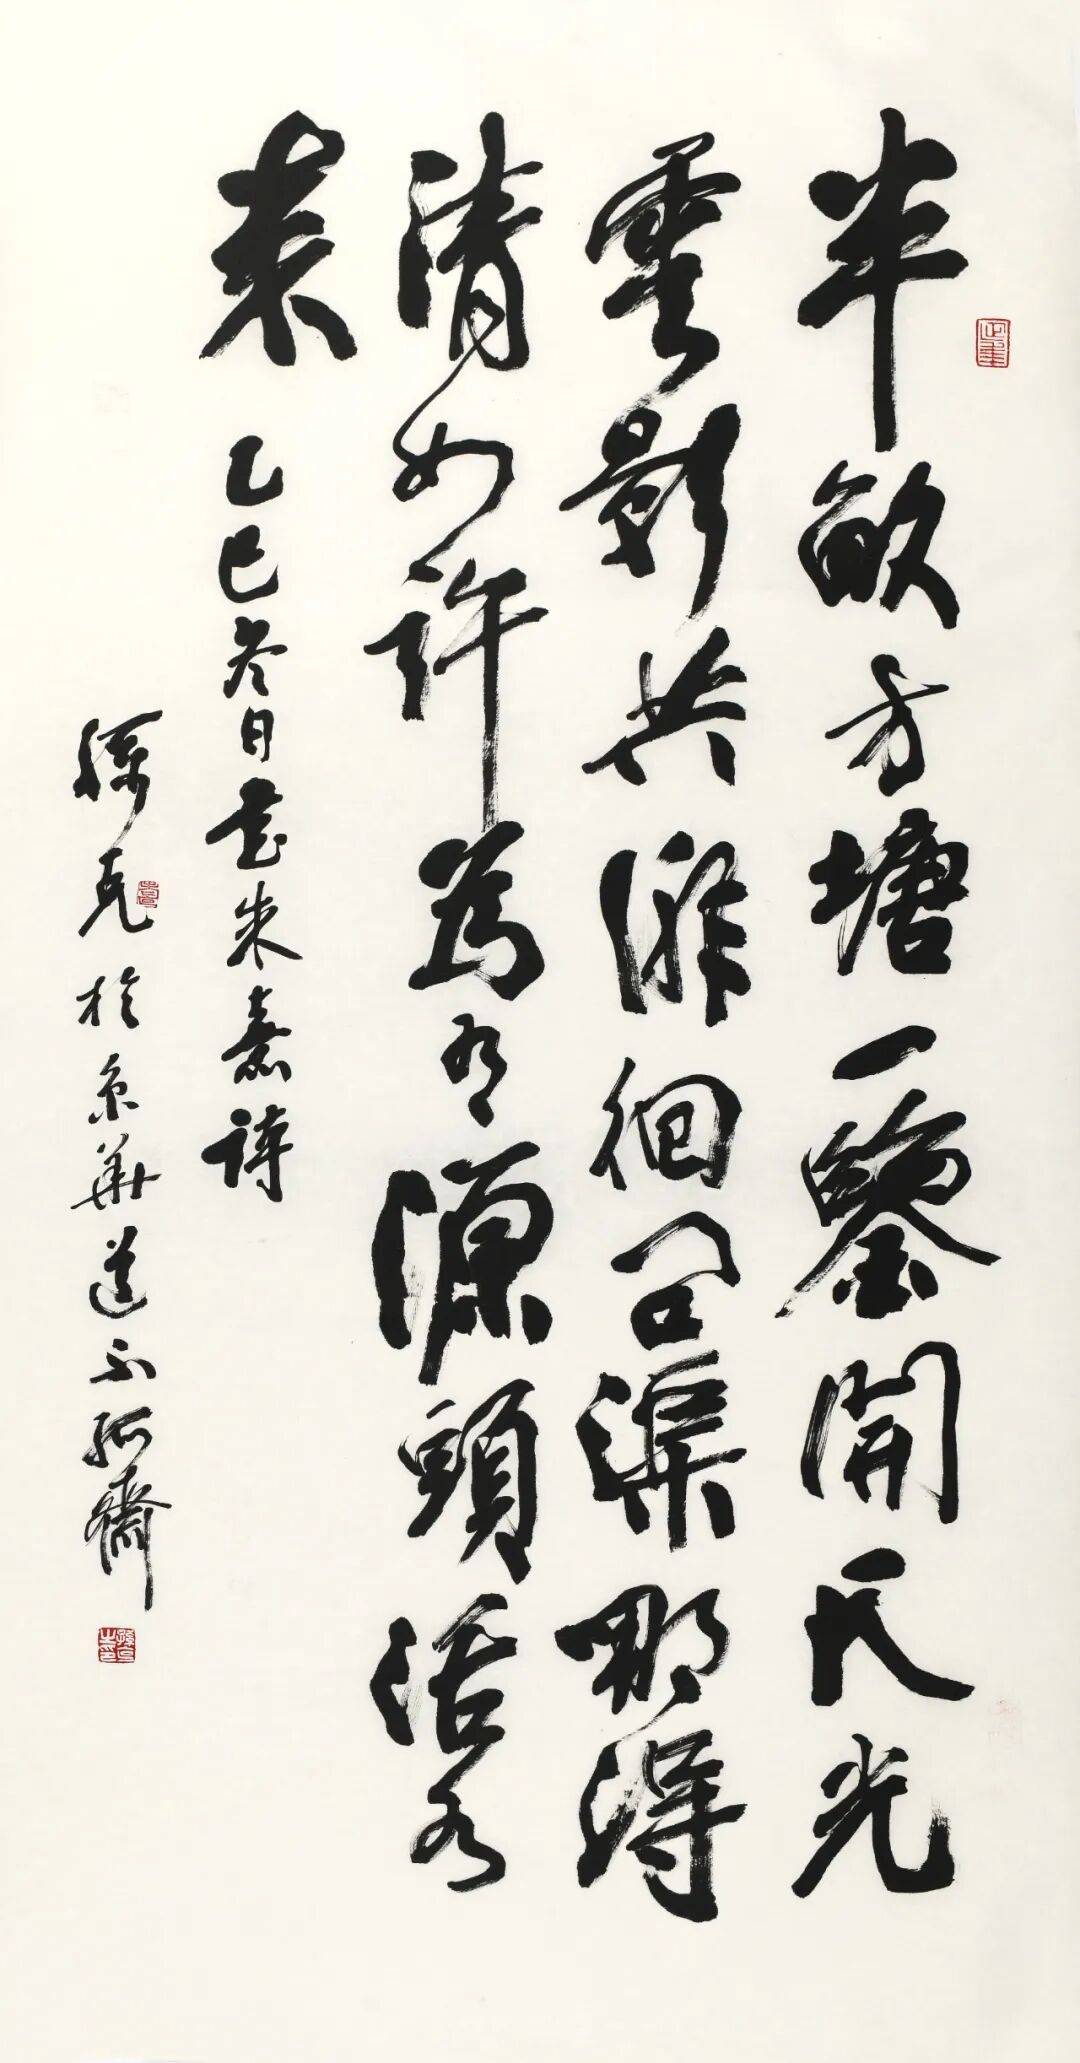 半畝方塘一鑒開天光
雲影共徘徊問渠那得
清如許為有源頭活水
来 乙巳冬日書朱熹詩
孫克於京華道不孤齋